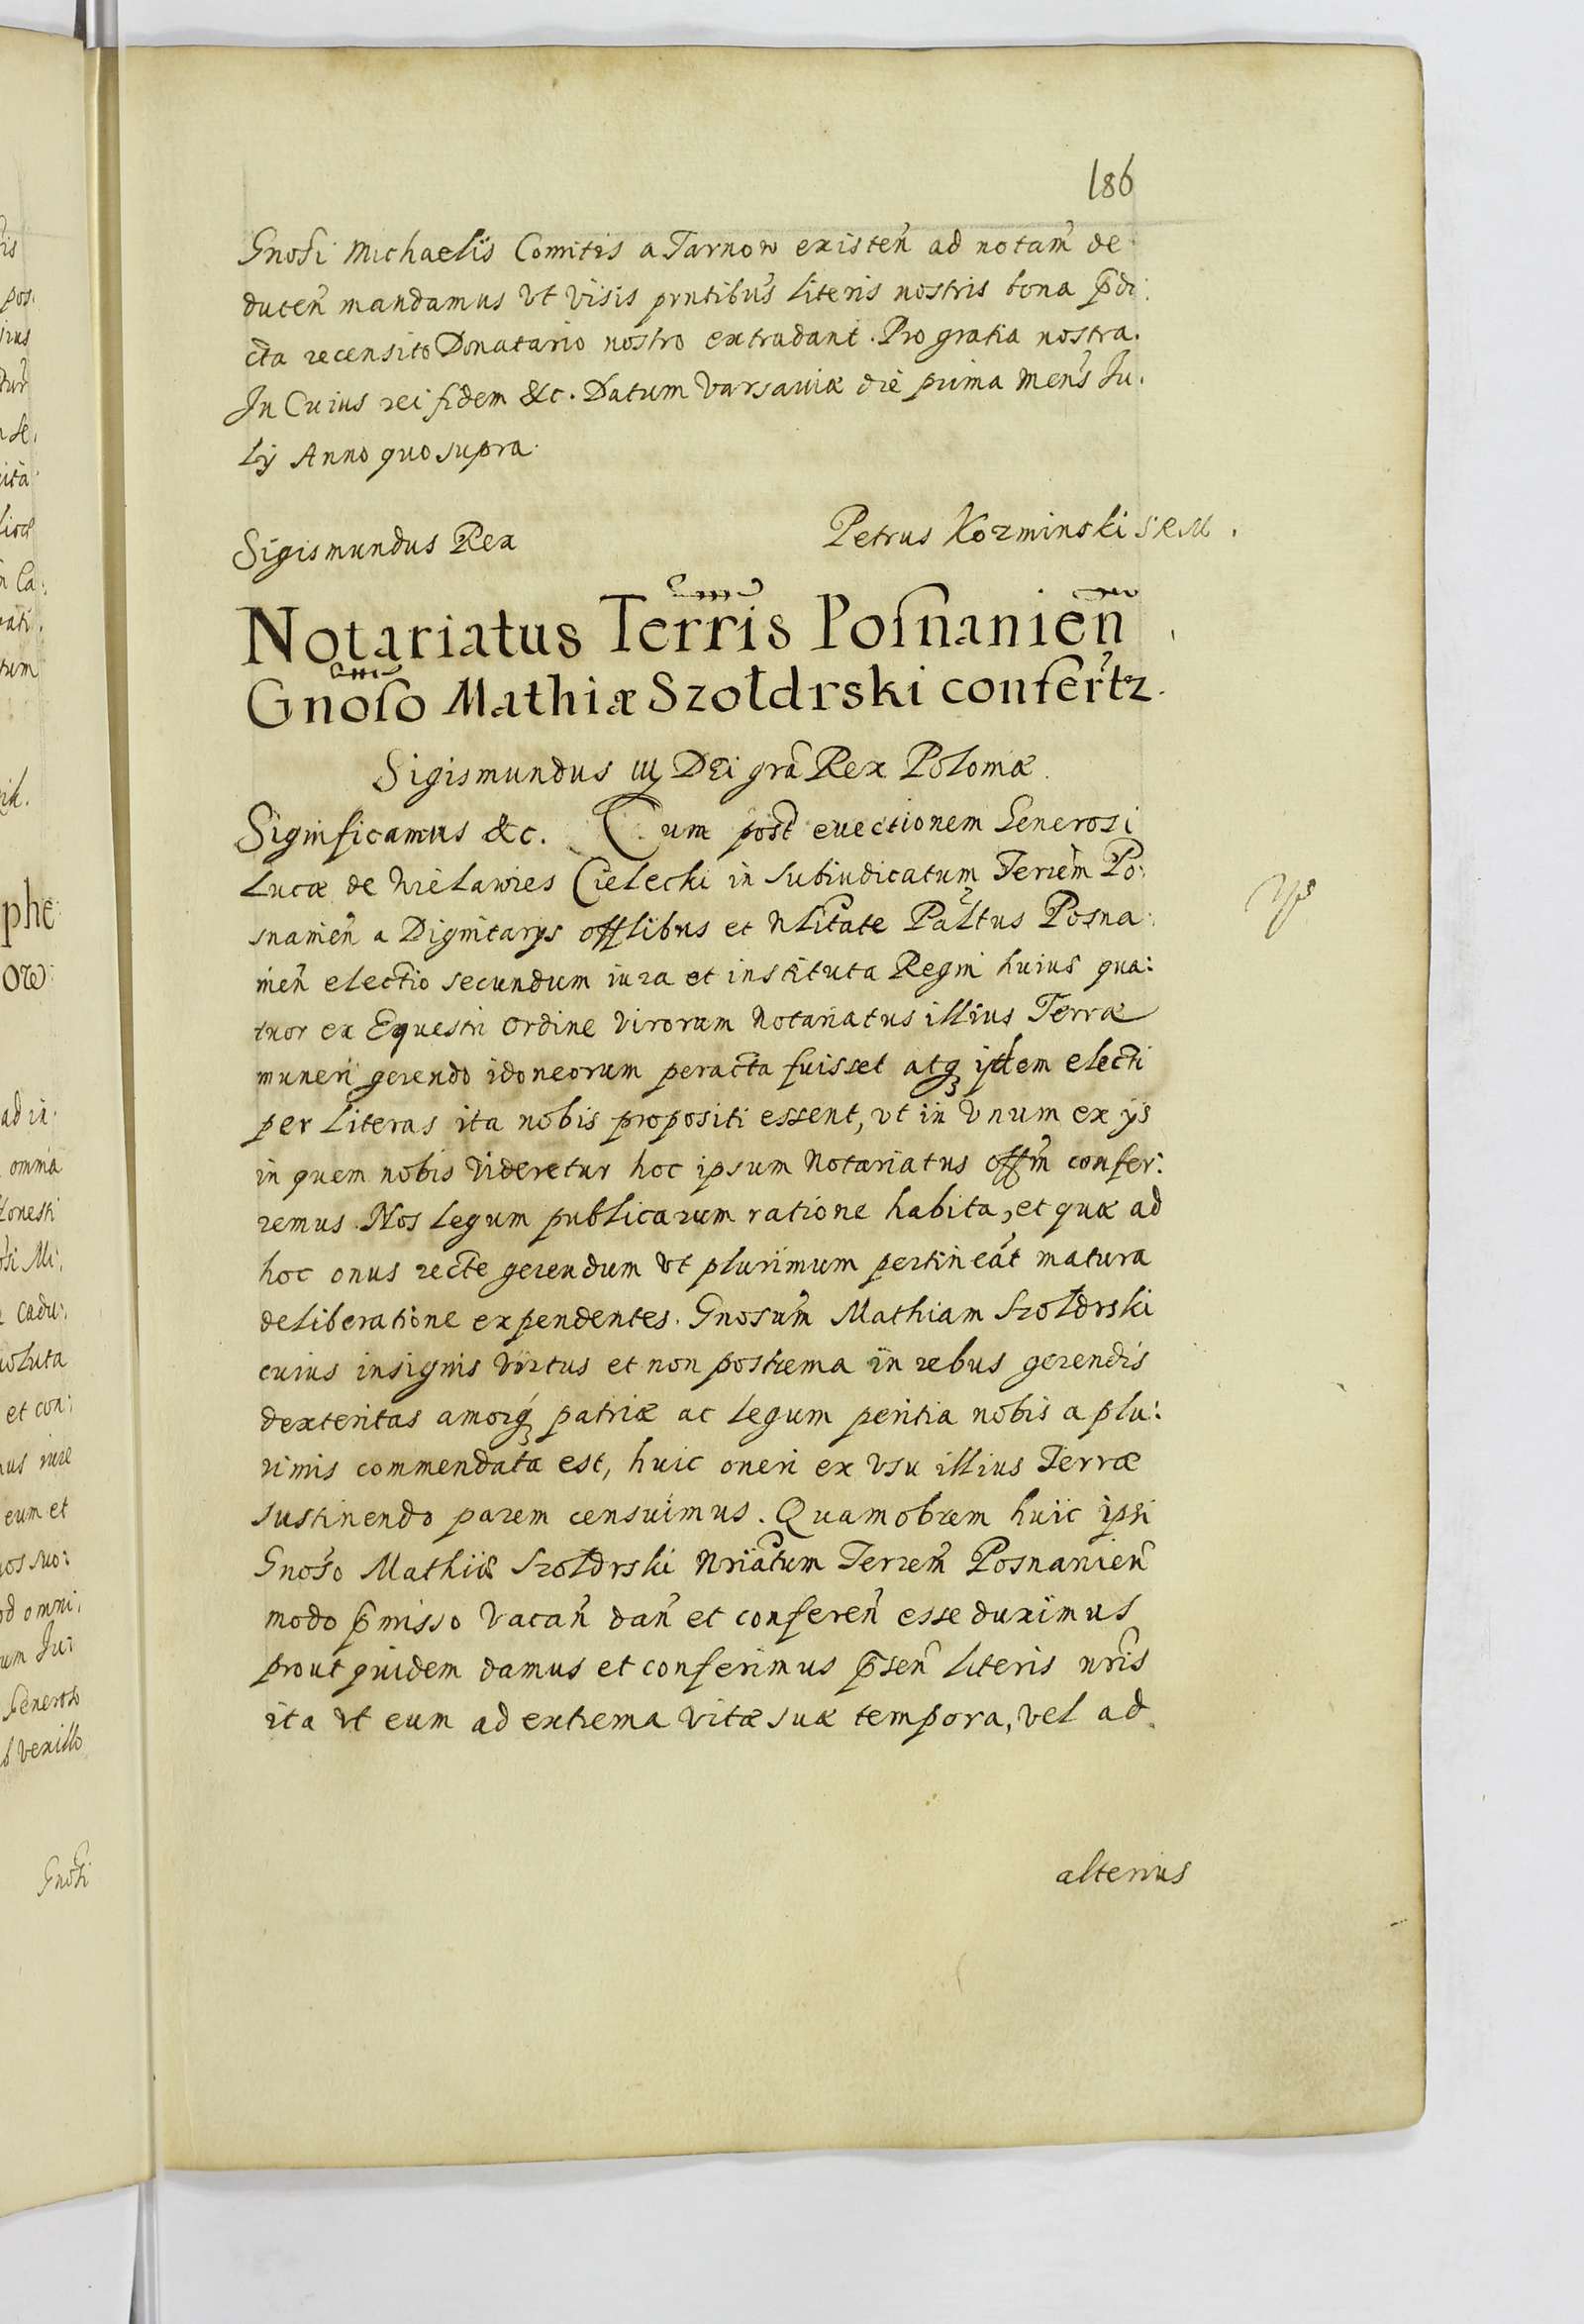 186
Gnosi Michaelis Comitis a Tarnow existen̄ ad notam̄ de
ducen̄ mandamus vt visis prntibus literis nostris bona p̄di:
cta recensito Donatario nostro extradant. Pro gratia nostra.
In Cuius rei fidem &c. Datum Varsaviæ die prima mens̄ Ju.
lij Anno quo supra.
Sigismundus Rex
Petrus Kozminski S R M.
Notariatus Terris Posnanien̄
Gnoso Mathiæ Szołdrski confertz.
Sigismundus iij DEi grā Rex Poloniæ.
Significamus &c. Cum post evectionem Generosi
Lucæ de Wielawies Cielecki in subiudicatum Terrēm Po:
snanien̄ a Dignitarijs offlibus et Nlitate Pal̄tus Posna:
nien̄ electio secundum iura et instituta Regni huius qua:
tuor ex Equestri ordine virorum Notariatus illius Terræ
muneri gerendo idoneorum peracta fuisset atq; ijdem electi
per literas ita nobis propositi essent, vt in vnum ex ijs
in quem nobis videretur hoc ipsum Notariatus offm̄ confer:
remus. Nos legum publicarum ratione habita, et quæ ad
hoc onus recte gerendum vt plurimum pertineāt matura
deliberatione expendentes. Gnosum̄ Mathiam Szołdrski
cuius insignis virtus et non postrema in rebus gerendis
dexteritas amorq; patriæ ac legum peritia nobis a plu:
rimis commendata est, huic oneri ex vsu illius Terræ
sustinendo parem censuimus. Quamobrem huic ipsi
Gnoso Mathiæ Szołdrski Nriātum Terrem̄ Posnanien̄
modo p̄misso vacan̄ dan̄ et conferen̄ esse duximus
prout quidem damus et conferimus p̄sen̄ literis nr̄is
ita vt eum ad extrema vitæ suæ tempora, vel ad
alterius